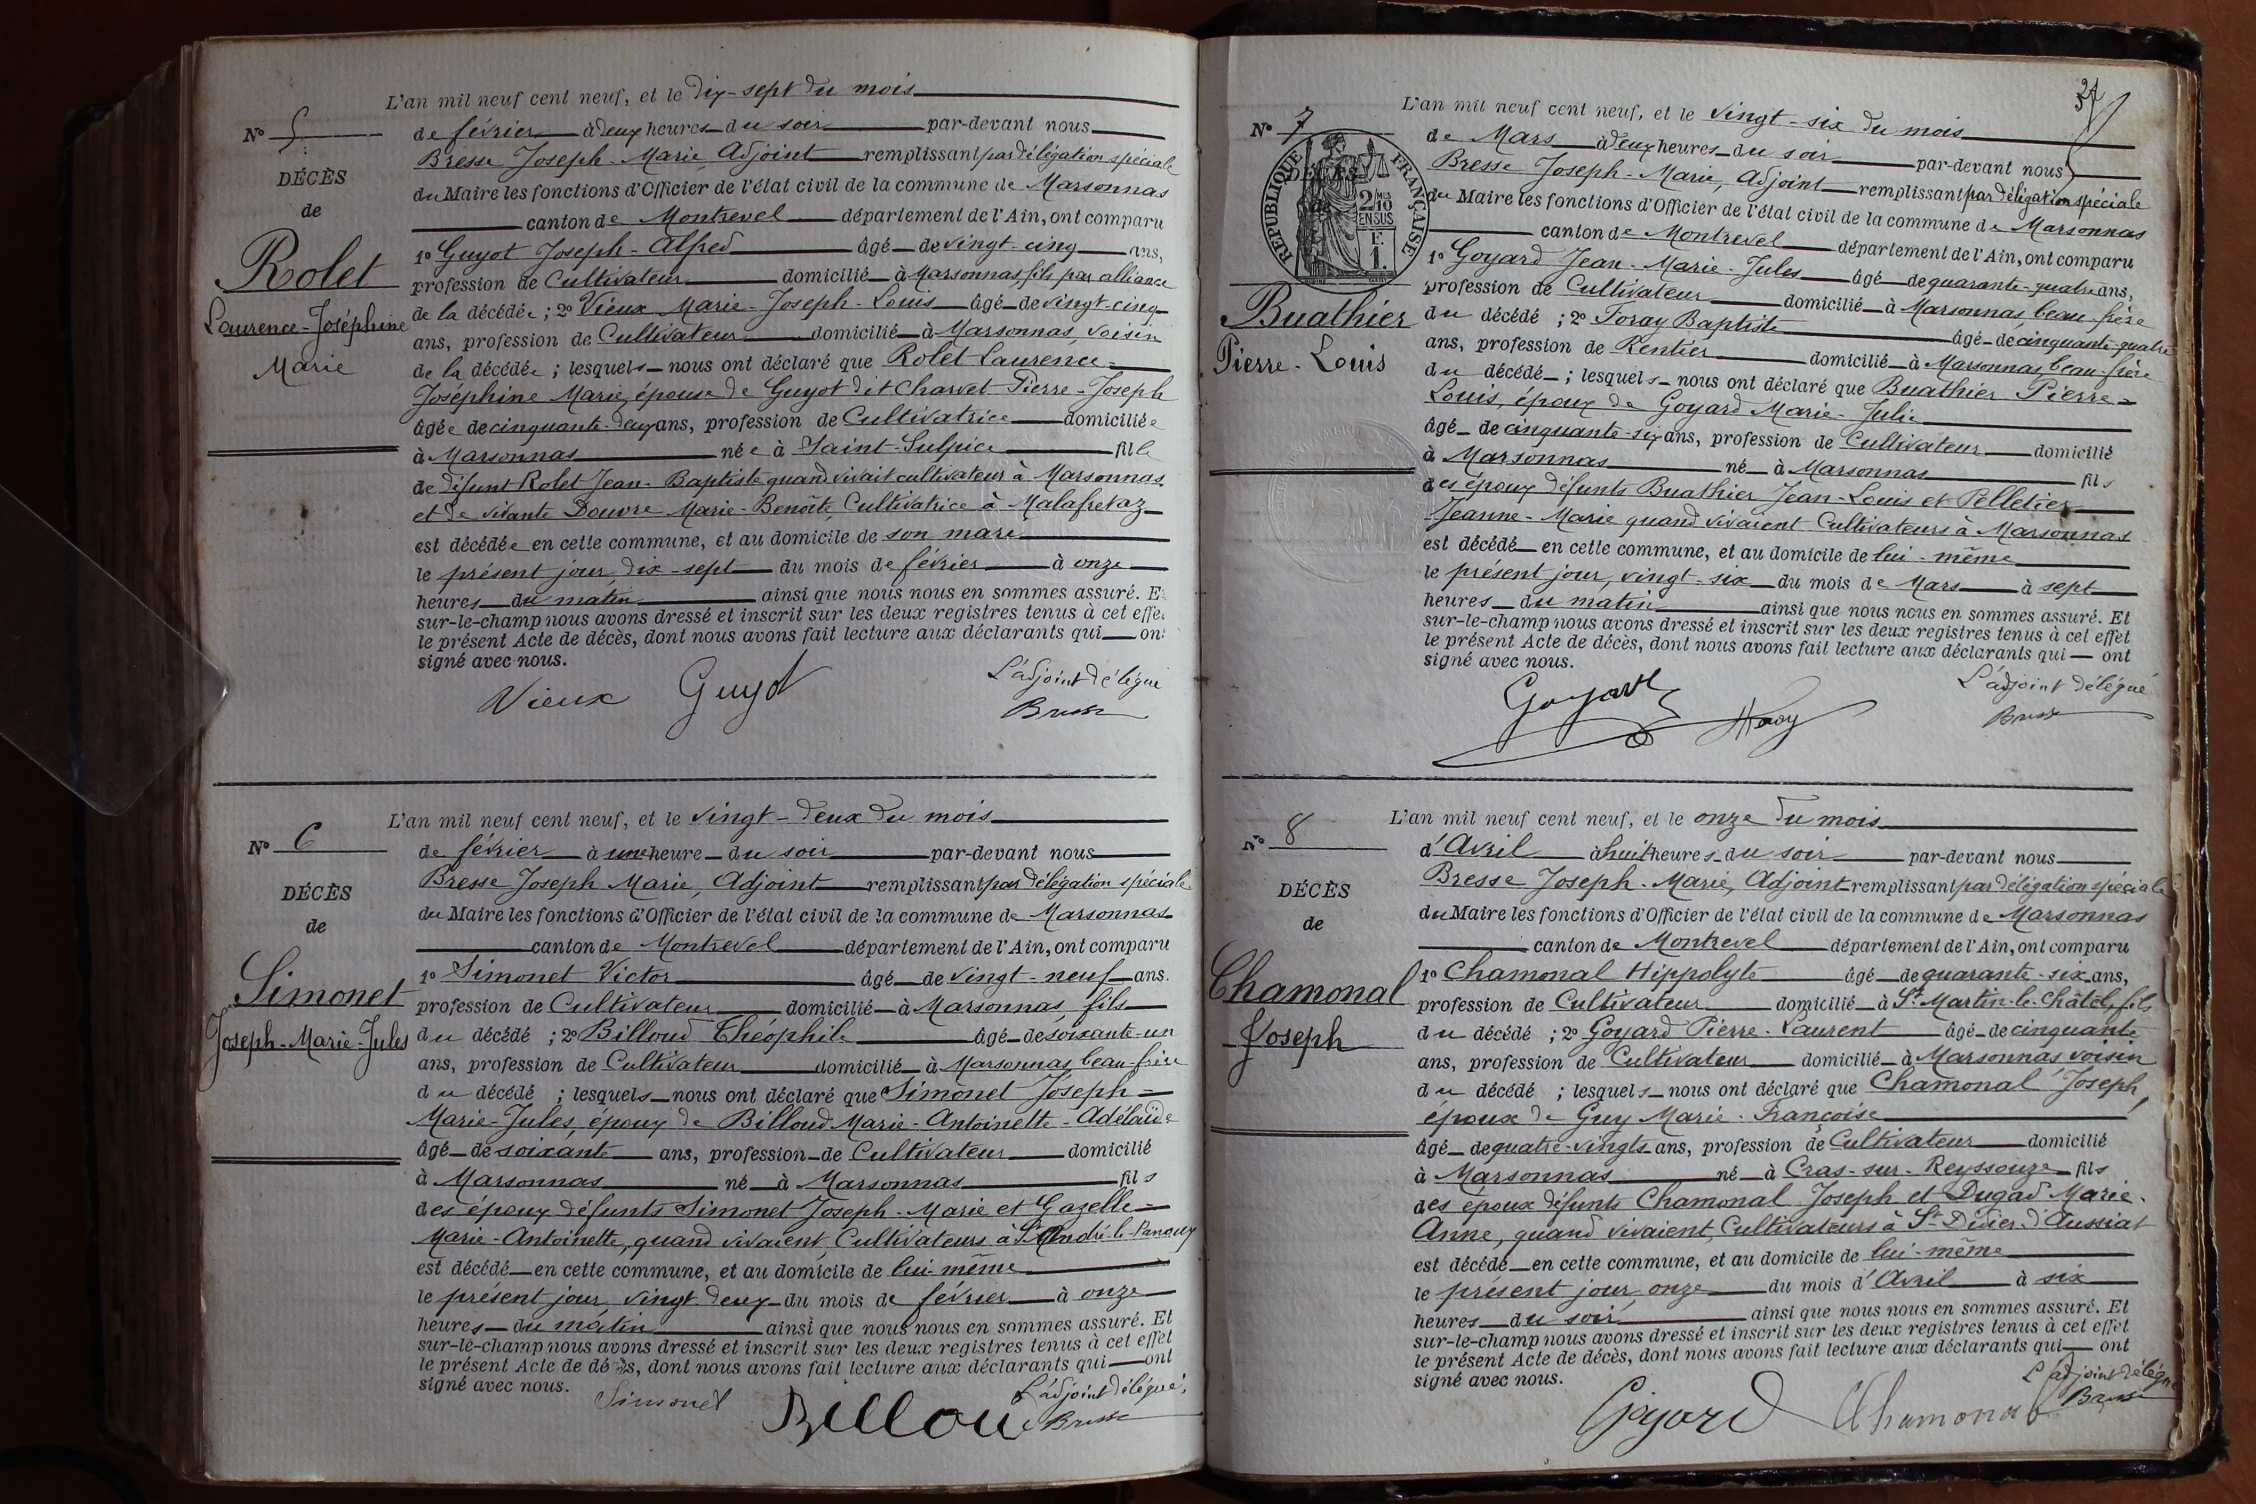 L'an mil neuf cent neuf, et le dix-sept du mois
N° 5
de février à deux heures du soir par-devant nous
Bresse Joseph-Marie Adjoint remplissant par délégation spéciale
DÉCÈS
du Maire les fonctions d'Officier de l'état civil de la commune de Marsonnas
de
canton de Montrevel département de l'Ain, ont comparu
Rolet
Laurence-Joséphine
Marie
1° Guyot Joseph-Alfred âgé de vingt-cinq ans,
profession de Cultivateur domicilié à Marsonnas, fils par alliance
de la décédée ; 2° Vieux Marie-Joseph-Louis âgé de vingt-cinq
ans, profession de Cultivateur domicilié à Marsonnas, voisin
de la décédée ; lesquels nous ont déclaré que Rolet Laurence=
Joséphine Marie, épouse de Guyot dit Charvet Pierre-Joseph
âgée de cinquante-deux ans, profession de Cultivatrice domiciliée
à Marsonnas née à Saint-Sulpice fille
de défunt Rolet Jean-Baptiste quand vivait cultivateur à Marsonnas
et de vivante Douvre Marie-Benoîte Cultivatrice à Malafretaz
est décédée en cette commune, et au domicile de son mari
le présent jour dix-sept du mois de février à onze
heures du matin ainsi que nous nous en sommes assuré. E
sur-le-champ nous avons dressé et inscrit sur les deux registres tenus à cet effe
le présent Acte de décès, dont nous avons fait lecture aux déclarants qui ont
signé avec nous.
Vieux Guyot
L'adjoint délégué
Bresse
L'an mil neuf cent neuf, et le vingt-deux du mois
N° 6
de février à une heure du soir par-devant nous
Bresse Joseph Marie, Adjoint remplissant par délégation spéciale
DÉCÈS
du Maire les fonctions d'Officier de l'état civil de la commune de Marsonnas
de
canton de Montrevel département de l'Ain, ont comparu
Simonet
Joseph-Marie-Jules
1° Simonet Victor âgé de vingt-neuf ans.
profession de Cultivateur domicilié à Marsonnas, fils
du décédé ; 2° Billoud Théophile âgé de soixante-un
ans, profession de Cultivateur domicilié à Marsonnas beau-frère
du décédé ; lesquels nous ont déclaré que Simonet Joseph=
Marie-Jules, époux de Billoud Marie-Antoinette-Adélaïde
âgé de soixante ans, profession de Cultivateur domicilié
à Marsonnas né à Marsonnas fils
des époux défunts Simonet Joseph-Marie et Gazelle=
Marie-Antoinette, quand vivaient, Cultivateurs à St André-le-Panoux
est décédé en cette commune, et au domicile de lui-même
le présent jour vingt-deux du mois de février à onze
heures du matin ainsi que nous nous en sommes assuré. Et
sur-le-champ nous avons dressé et inscrit sur les deux registres tenus à cet effet
le présent Acte de décès, dont nous avons fait lecture aux déclarants qui ont
signé avec nous.
Simonet Billoud
L'adjoint délégué,
Bresse
L'an mil neuf cent neuf, et le vingt-six du mois
N° 7
de Mars à deux heures du soir par-devant nous
Bresse Joseph-Marie, Adjoint remplissant par délégation spéciale
DÉCÈS
de
RÉPUBLIQUE FRANÇAISE
2/10 EN SUS
F. 1.
du Maire les fonctions d'Officier de l'état civil de la commune de Marsonnas
canton de Montrevel département de l'Ain, ont comparu
Buathier
Pierre-Louis
1° Goyard Jean-Marie-Jules âgé de quarante-quatre ans,
profession de Cultivateur domicilié à Marsonnas beau-frère
du décédé ; 2° Foray Baptiste âgé de cinquante-quatre
ans, profession de Rentier domicilié à Marsonnas, beau-frère
du décédé ; lesquels nous ont déclaré que Buathier Pierre=
Louis, époux de Goyard Marie-Julie
âgé de cinquante-six ans, profession de Cultivateur domicilié
à Marsonnas né à Marsonnas fils
des époux défunts Buathier Jean-Louis et Pelletier
Jeanne-Marie quand vivaient Cultivateurs à Marsonnas
est décédé en cette commune, et au domicile de lui-même
le présent jour, vingt-six du mois de Mars à sept
heures du matin ainsi que nous nous en sommes assuré. Et
sur-le-champ nous avons dressé et inscrit sur les deux registres tenus à cet effet
le présent Acte de décès, dont nous avons fait lecture aux déclarants qui ont
signé avec nous.
Goyard Foray
L'adjoint délégué
Bresse
L'an mil neuf cent neuf, et le onze du mois
N° 8
d'Avril à huit heures du soir par-devant nous
Bresse Joseph-Marie, Adjoint remplissant par délégation spéciale
DÉCÈS
du Maire les fonctions d'Officier de l'état civil de la commune de Marsonnas
de
canton de Montrevel département de l'Ain, ont comparu
Chamonal
Joseph
1° Chamonal Hippolyte âgé de quarante-six ans,
profession de Cultivateur domicilié à St Martin-le-Châtel, fils
du décédé ; 2° Goyard Pierre-Laurent âgé de cinquante
ans, profession de Cultivateur domicilié à Marsonnas voisin
du décédé ; lesquels nous ont déclaré que Chamonal Joseph,
époux de Guy Marie-Françoise
âgé de quatre-vingts ans, profession de Cultivateur domicilié
à Marsonnas né à Cras-sur-Reyssouze fils
des époux défunts Chamonal Joseph et Dugad Marie-
Anne, quand vivaient, Cultivateurs à St-Didier-d'Aussiat
est décédé en cette commune, et au domicile de lui-même
le présent jour onze du mois d'Avril à six
heures du soir ainsi que nous nous en sommes assuré. Et
sur-le-champ nous avons dressé et inscrit sur les deux registres tenus à cet effet
le présent Acte de décès, dont nous avons fait lecture aux déclarants qui ont
signé avec nous.
Goyard Chamonal
L'adjoint délégué
Bresse